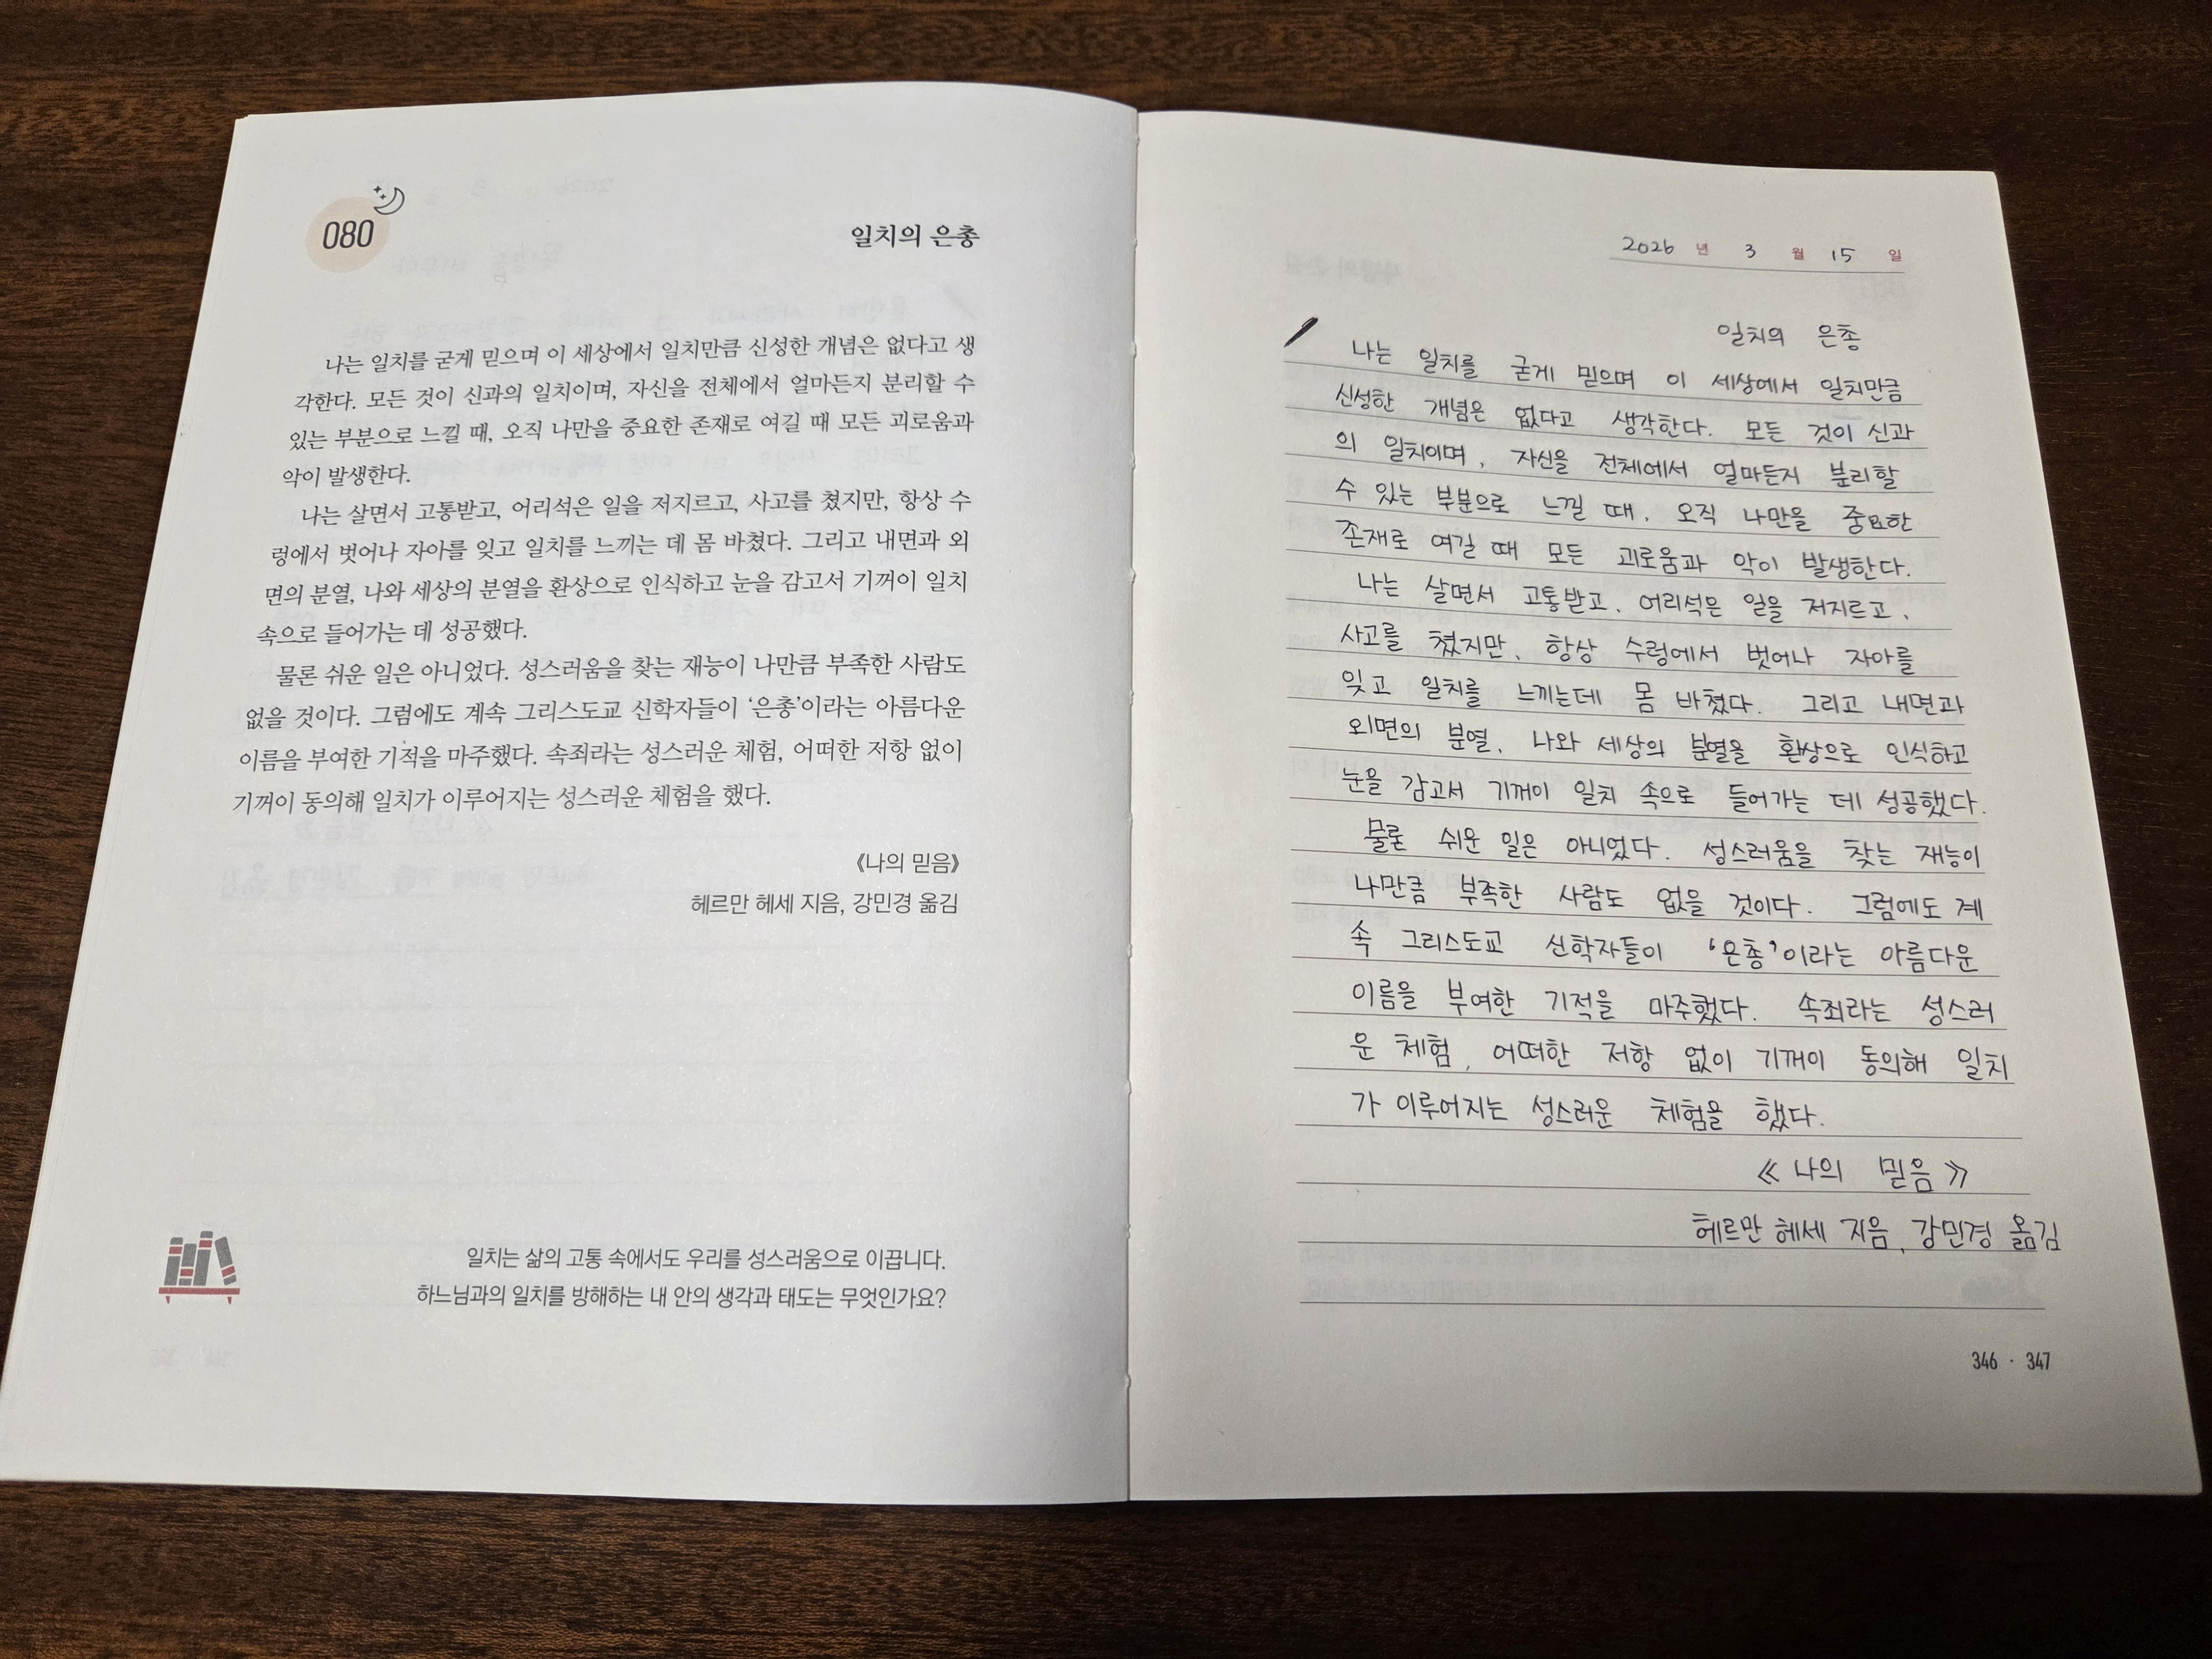 080
일치의 은총
나는 일치를 굳게 믿으며 이 세상에서 일치만큼 신성한 개념은 없다고 생
각한다. 모든 것이 신과의 일치이며, 자신을 전체에서 얼마든지 분리할 수
있는 부분으로 느낄 때, 오직 나만을 중요한 존재로 여길 때 모든 괴로움과
악이 발생한다.
나는 살면서 고통받고, 어리석은 일을 저지르고, 사고를 쳤지만, 항상 수
렁에서 벗어나 자아를 잊고 일치를 느끼는 데 몸 바쳤다. 그리고 내면과 외
면의 분열, 나와 세상의 분열을 환상으로 인식하고 눈을 감고서 기꺼이 일치
속으로 들어가는 데 성공했다.
물론 쉬운 일은 아니었다. 성스러움을 찾는 재능이 나만큼 부족한 사람도
없을 것이다. 그럼에도 계속 그리스도교 신학자들이 ‘은총’이라는 아름다운
이름을 부여한 기적을 마주했다. 속죄라는 성스러운 체험, 어떠한 저항 없이
기꺼이 동의해 일치가 이루어지는 성스러운 체험을 했다.
《나의 믿음》
헤르만 헤세 지음, 강민경 옮김
일치는 삶의 고통 속에서도 우리를 성스러움으로 이끕니다.
하느님과의 일치를 방해하는 내 안의 생각과 태도는 무엇인가요?
2026 년 3 월 15 일
일치의 은총
나는 일치를 굳게 믿으며 이 세상에서 일치만큼
신성한 개념은 없다고 생각한다. 모든 것이 신과
의 일치이며, 자신을 전체에서 얼마든지 분리할
수 있는 부분으로 느낄 때, 오직 나만을 중요한
존재로 여길 때 모든 괴로움과 악이 발생한다.
나는 살면서 고통받고, 어리석은 일을 저지르고,
사고를 쳤지만, 항상 수렁에서 벗어나 자아를
잊고 일치를 느끼는데 몸 바쳤다. 그리고 내면과
외면의 분열, 나와 세상의 분열을 환상으로 인식하고
눈을 감고서 기꺼이 일치 속으로 들어가는 데 성공했다.
물론 쉬운 일은 아니었다. 성스러움을 찾는 재능이
나만큼 부족한 사람도 없을 것이다. 그럼에도 계
속 그리스도교 신학자들이 ‘은총’이라는 아름다운
이름을 부여한 기적을 마주했다. 속죄라는 성스러
운 체험, 어떠한 저항 없이 기꺼이 동의해 일치
가 이루어지는 성스러운 체험을 했다.
《나의 믿음》
헤르만 헤세 지음, 강민경 옮김
346 · 347